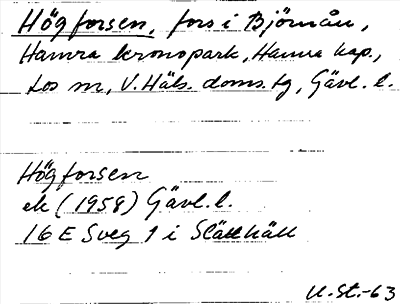 Högforsen, fors i Björnån,
Hamra kronopark, Hamra kap.,
Los sn, V. Häls. doms.tg, Gävl. l.
Högforsen
ek (1958) Gävl. l.
16 E Sveg 1 i Slättkäll
U.St.-63